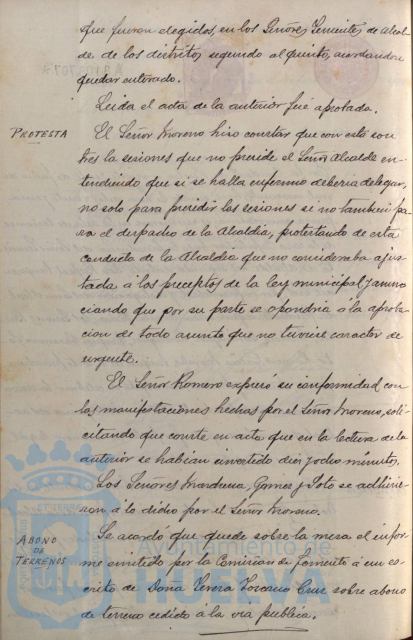 que fueron elegidos, en los Señores Tenientes de Alcal
de de los distritos segundo al quinto, acordandose
quedar enterado.
Leida el acta de la anterior fué aprobada.
PROTESTA
El Señor Moreno hizo constar que con esta son
tres la sesiones que no preside el Señor Alcalde en-
tendiendo que si se halla enfermo deberia delegar,
no solo para presidir las sesiones si no tambien pa
ra el despacho de la Alcaldia, protestando de esta
conducta de la Alcaldia que no consideraba ajus
tada á los preceptos de la ley municipal y anun
ciando que por su parte se opondria á la aproba
cion de todo asunto que no tuviese caracter de
urgente.
El Señor Romero expresó su conformidad con
las manifestaciones hechas por el Señor Moreno, soli
citando que conste en acta que en la lectura de la
anterior se habian invertido diez y ocho minutos.
Los Señores Marchena, Gomez y Soto se adhirie
ron a lo dicho por el Señor Moreno.
ABONO
DE
TERRENOS
Se acordó que quede sobre la mesa el infor
me emitido por la Comision de Fomento á un es
crito de Doña Cruz sobre abono
de terreno cedido á la via publica.
Ayuntamiento de
HUELVA